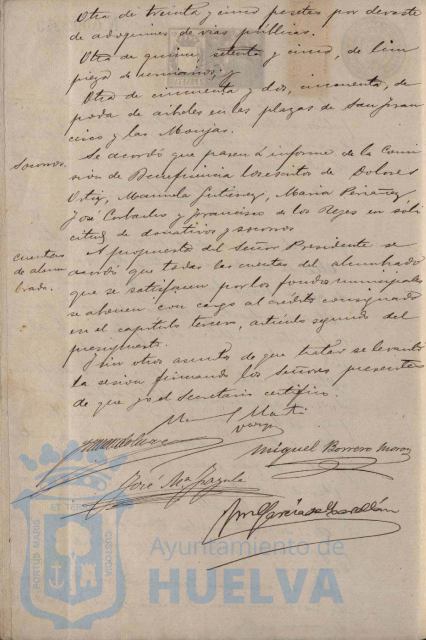 Otra de treinta y cinco pesetas por devaste
de adoquines de vias públicas.
Otra de quince, setenta y cinco, de lim
pieza de urinarios; y
Otra de cincuenta y dos, cincuenta, de
poda de árboles en las plazas de San Fran
cisco y las Monjas.
Socorros.
Se acordó que pasen á informe de la Comi
sión de Beneficencia los escritos de Dolores
Ortiz, Manuela Gutierrez, María
José Corbacho y Francisco de los Reyes en soli
citud de donativos y socorros
Cuentas
de alum
brado.
A propuesta del Señor Presidente se
acordó que todas las cuentas del alumbrado
que se satisfacen por los fondos municipales
se abonen con cargo al crédito consignado
en el capítulo tercero, artículo segundo del
presupuesto.
Y sin otros asuntos de que tratar se levantó
la sesión firmando los Señores presentes
de que yo el Secretario certifico.
Miguel Borrero Moron
José Mª
García de
PORTUS MARIS
ET TERRAE
CUSTODIA
Ayuntamiento de
HUELVA